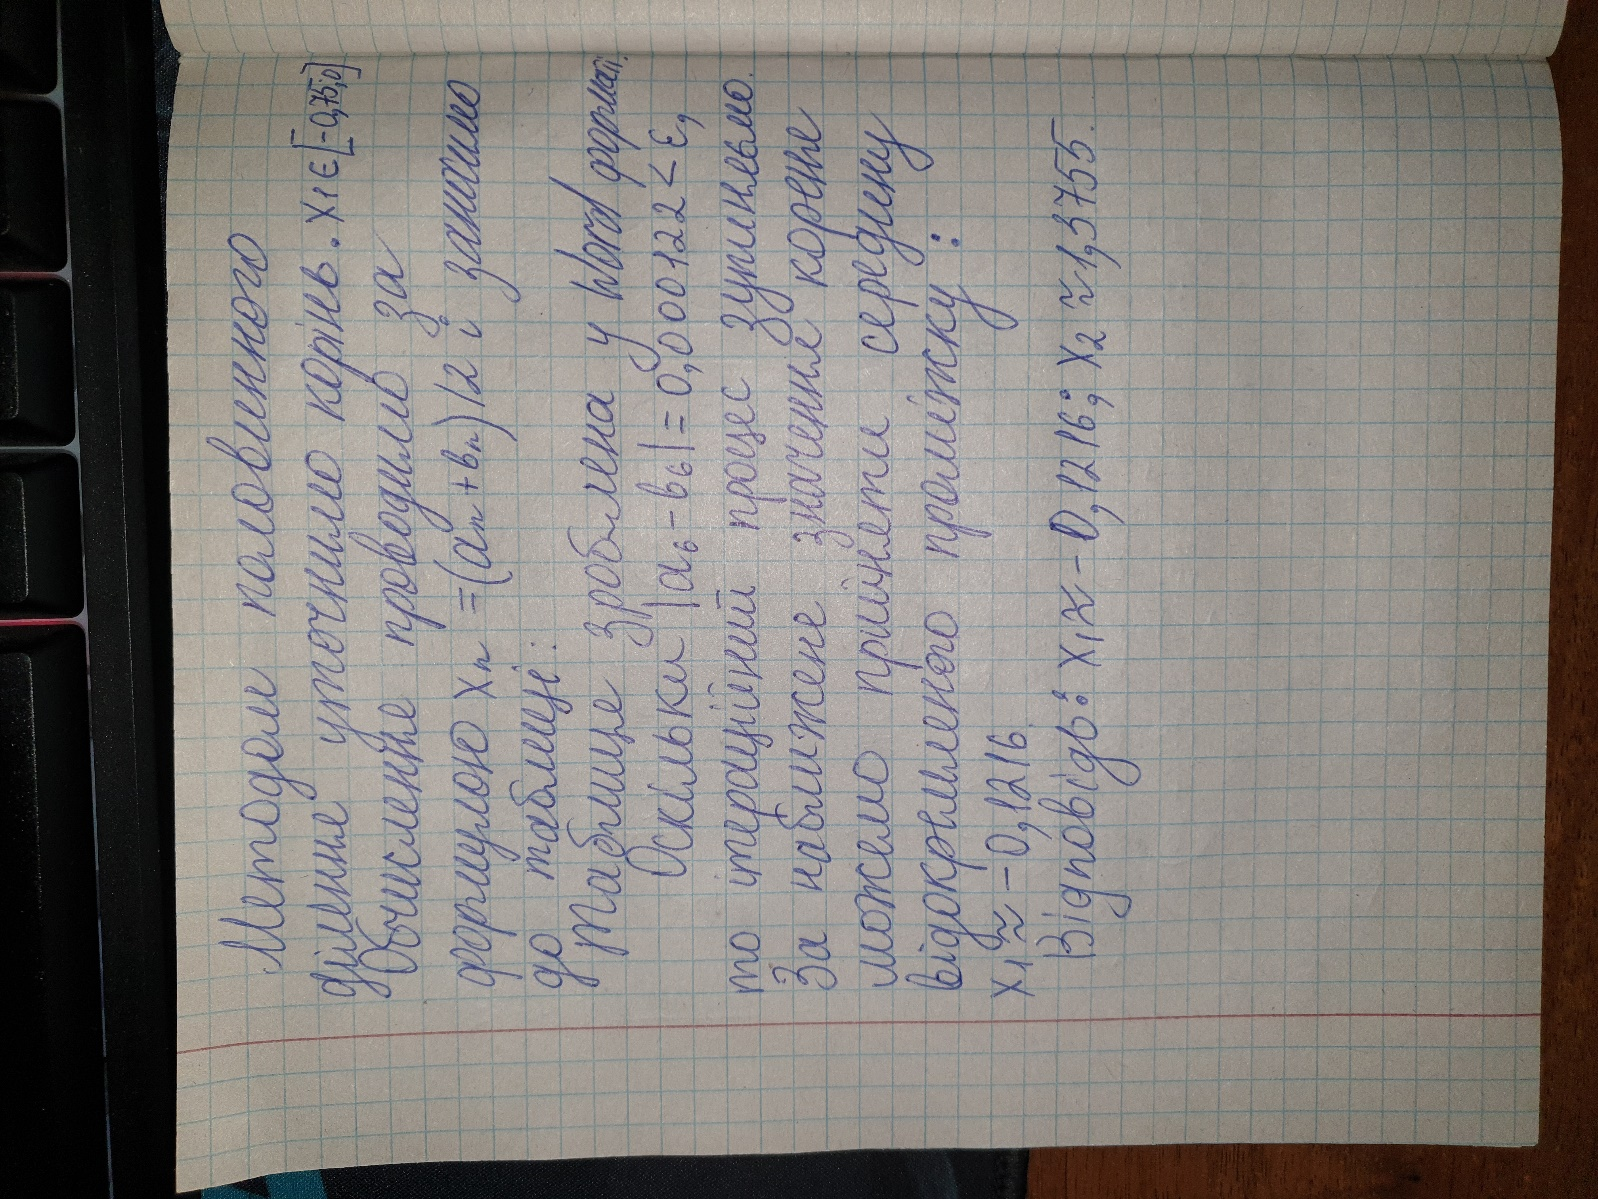 Методом половинного
ділення уточнимо корінь. x₁∈[-0,75;0]
Обчислення проводимо за
формулою xₙ = (aₙ + bₙ)/2 і занесимо
до таблиці:
Таблиця зроблена у Word форматі.
Оскільки |a₆ - b₆| = 0,000122 < ε,
то ітераційний процес зупиняьмо.
За наближене значення кореня
можемо прийняти середину
відокремленого проміжку:
x₁ ≈ -0,1216.
Відповідь: x₁ ≈ -0,1216; x₂ ≈ 1,3755.